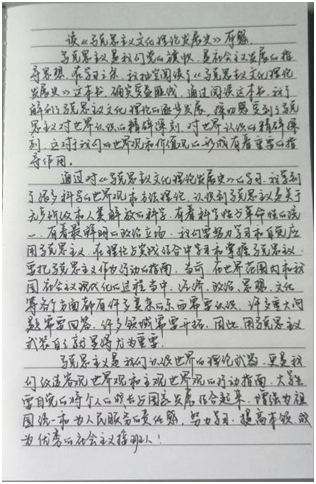 读《马克思主义文化理论发展史》有感
马克思主义是我们党的旗帜,是社会主义发展的指
导思想。在学习之余,我抽空阅读了《马克思主义文化理论
发展史》这本书,确实受益匪浅。通过阅读这本书,我了
解到了马克思主义文化理论的逐步发展,深切感受到了马克
思主义对世界认识的精辟深刻,对世界认识的精辟深
刻,这对于我们的世界观和价值观的形成有着重要的指
导作用。
通过对《马克思主义文化理论发展史》的学习,我学到
了很多科学的世界观和方法理论,认识到马克思主义是关于
无产阶级和人类解放的科学,有着科学性与革命性的统
一,有着最鲜明的政治立场,我们要努力学习和自觉应
用马克思主义,在理论与实践结合中学习和掌握马克思主义,
要把马克思主义作为行动的指南。当前,在世界范围内和我
国社会主义现代化的过程当中,经济、政治、思想、文化
等各个方面都有许多复杂的东西需要认识,许多重大问
题需要回答,许多领域需要开拓,因此,用马克思主义
武装自己就显得尤为重要。
马克思主义是我们认识世界的理论武器,更是我
们改造客观世界和主观世界的行动指南,大学生
要自觉的将个人的成长与国家发展结合起来,增强为祖
国统一和为人民服务的责任感,努力学习,提高本领,成
为优秀的社会主义接班人!